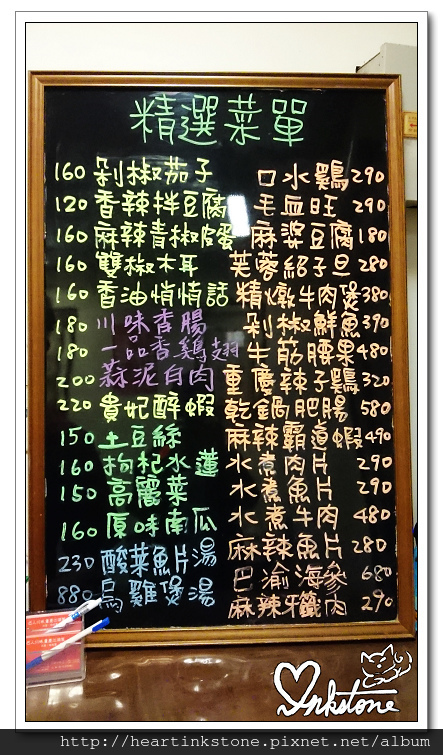 精選菜單
160 剁椒茄子
120 香辣拌豆腐
160 麻辣青椒皮蛋
160 雙椒木耳
160 香油悄悄話
180 川味香腸
180 一品香鷄翅
200 蒜泥白肉
220 貴妃醉蝦
150 土豆絲
160 枸杞水蓮
150 高麗菜
160 原味南瓜
230 酸菜魚片湯
880 烏雞煲湯
口水鷄 290
毛血旺 290
麻婆豆腐 180
芙蓉紹子旦 280
精燉牛肉煲 380
剁椒鮮魚 390
牛筋腰果 480
重慶辣子鷄 320
乾鍋肥腸 580
麻辣霸道蝦 490
水煮肉片 290
水煮魚片 290
水煮牛肉 480
麻辣魚片 280
巴渝海參 680
麻辣牙籤肉 290
Inkstone
http://heartinkstone.pixnet.net/album